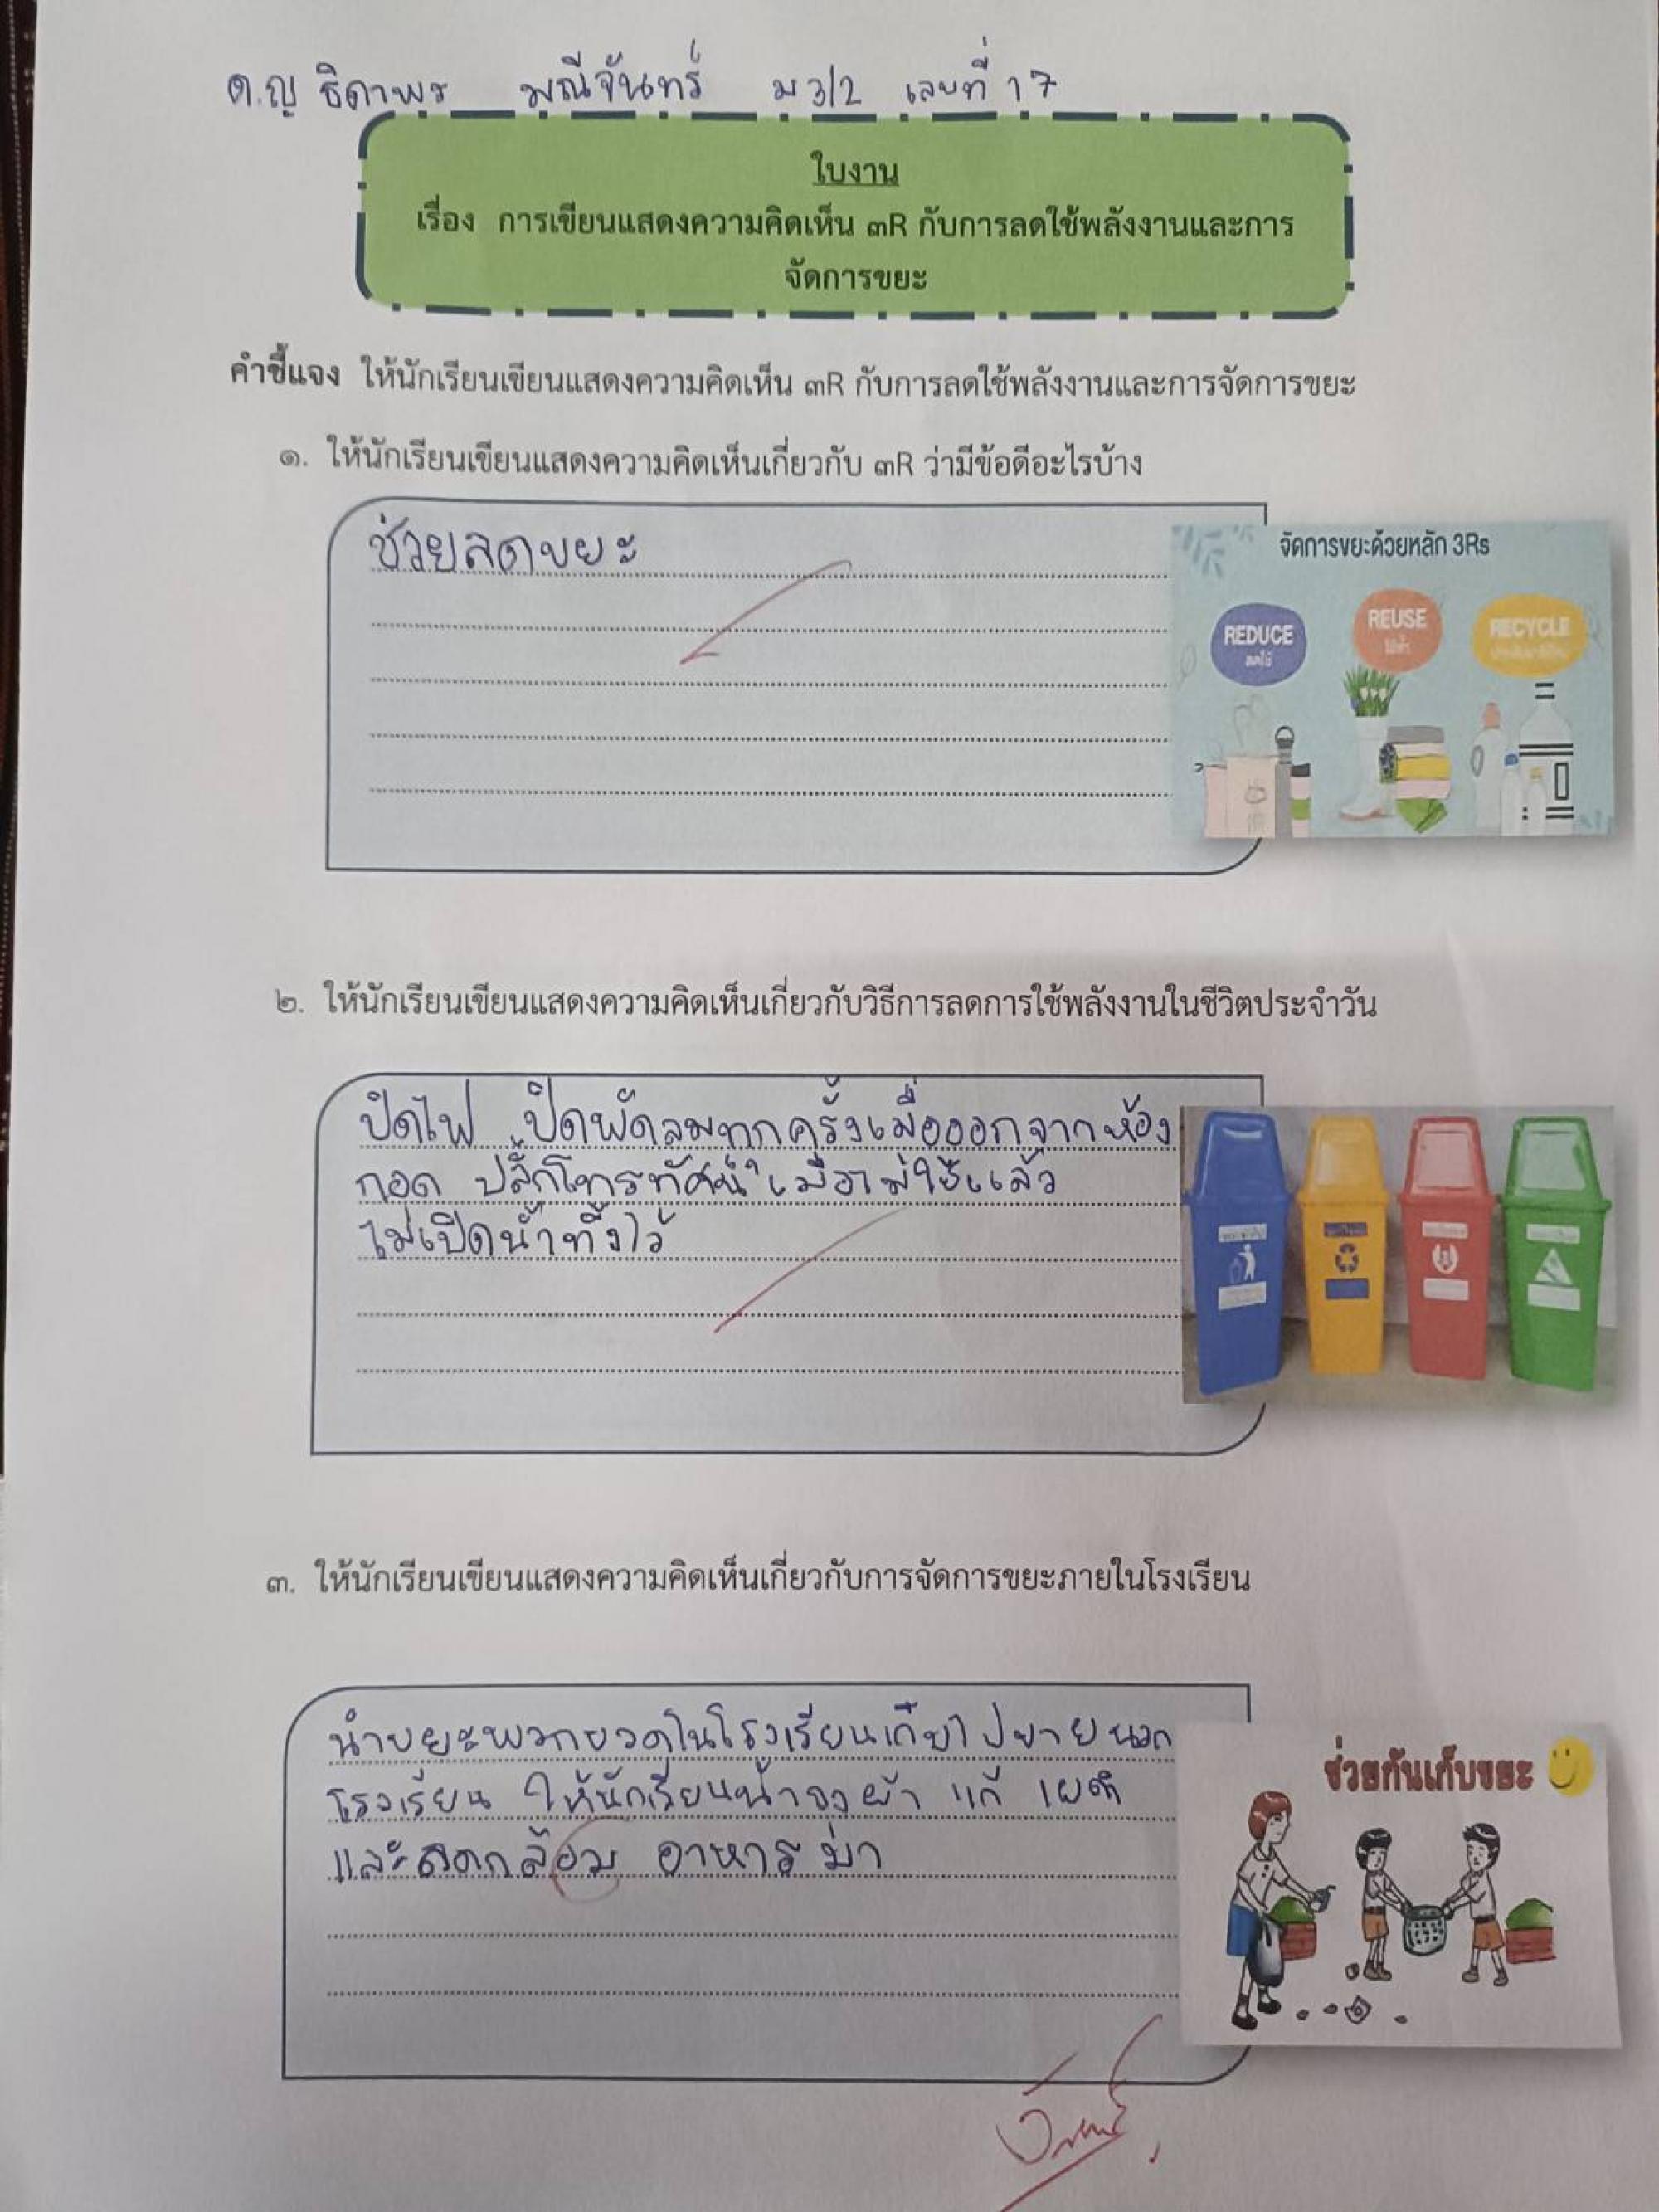 ด.ญ ธิดาพร มณีจันทร์ ม 3/2 เลขที่ 17
ใบงาน
เรื่อง การเขียนแสดงความคิดเห็น ๓R กับการลดใช้พลังงานและการ
จัดการขยะ
คำชี้แจง ให้นักเรียนเขียนแสดงความคิดเห็น ๓R กับการลดใช้พลังงานและการจัดการขยะ
๑. ให้นักเรียนเขียนแสดงความคิดเห็นเกี่ยวกับ ๓R ว่ามีข้อดีอะไรบ้าง
ช่วยลดขยะ
จัดการขยะด้วยหลัก 3Rs
REDUCE
ลดใช้
REUSE
ใช้ซ้ำ
RECYCLE
๒. ให้นักเรียนเขียนแสดงความคิดเห็นเกี่ยวกับวิธีการลดการใช้พลังงานในชีวิตประจำวัน
ปิดไฟ ปิดพัดลมทุกครั้งเมื่อออกจากห้อง
ถอด ปลั๊กโทรทัศน์ เมื่อไม่ใช้แล้ว
ไม่เปิดน้ำทิ้งไว้
๓. ให้นักเรียนเขียนแสดงความคิดเห็นเกี่ยวกับการจัดการขยะภายในโรงเรียน
นำขยะพวกขวดในโรงเรียนเก็บไปขายนอก
โรงเรียน ให้นักเรียน ผ้า
และ อาหาร มา
ช่วยกันเก็บขยะ